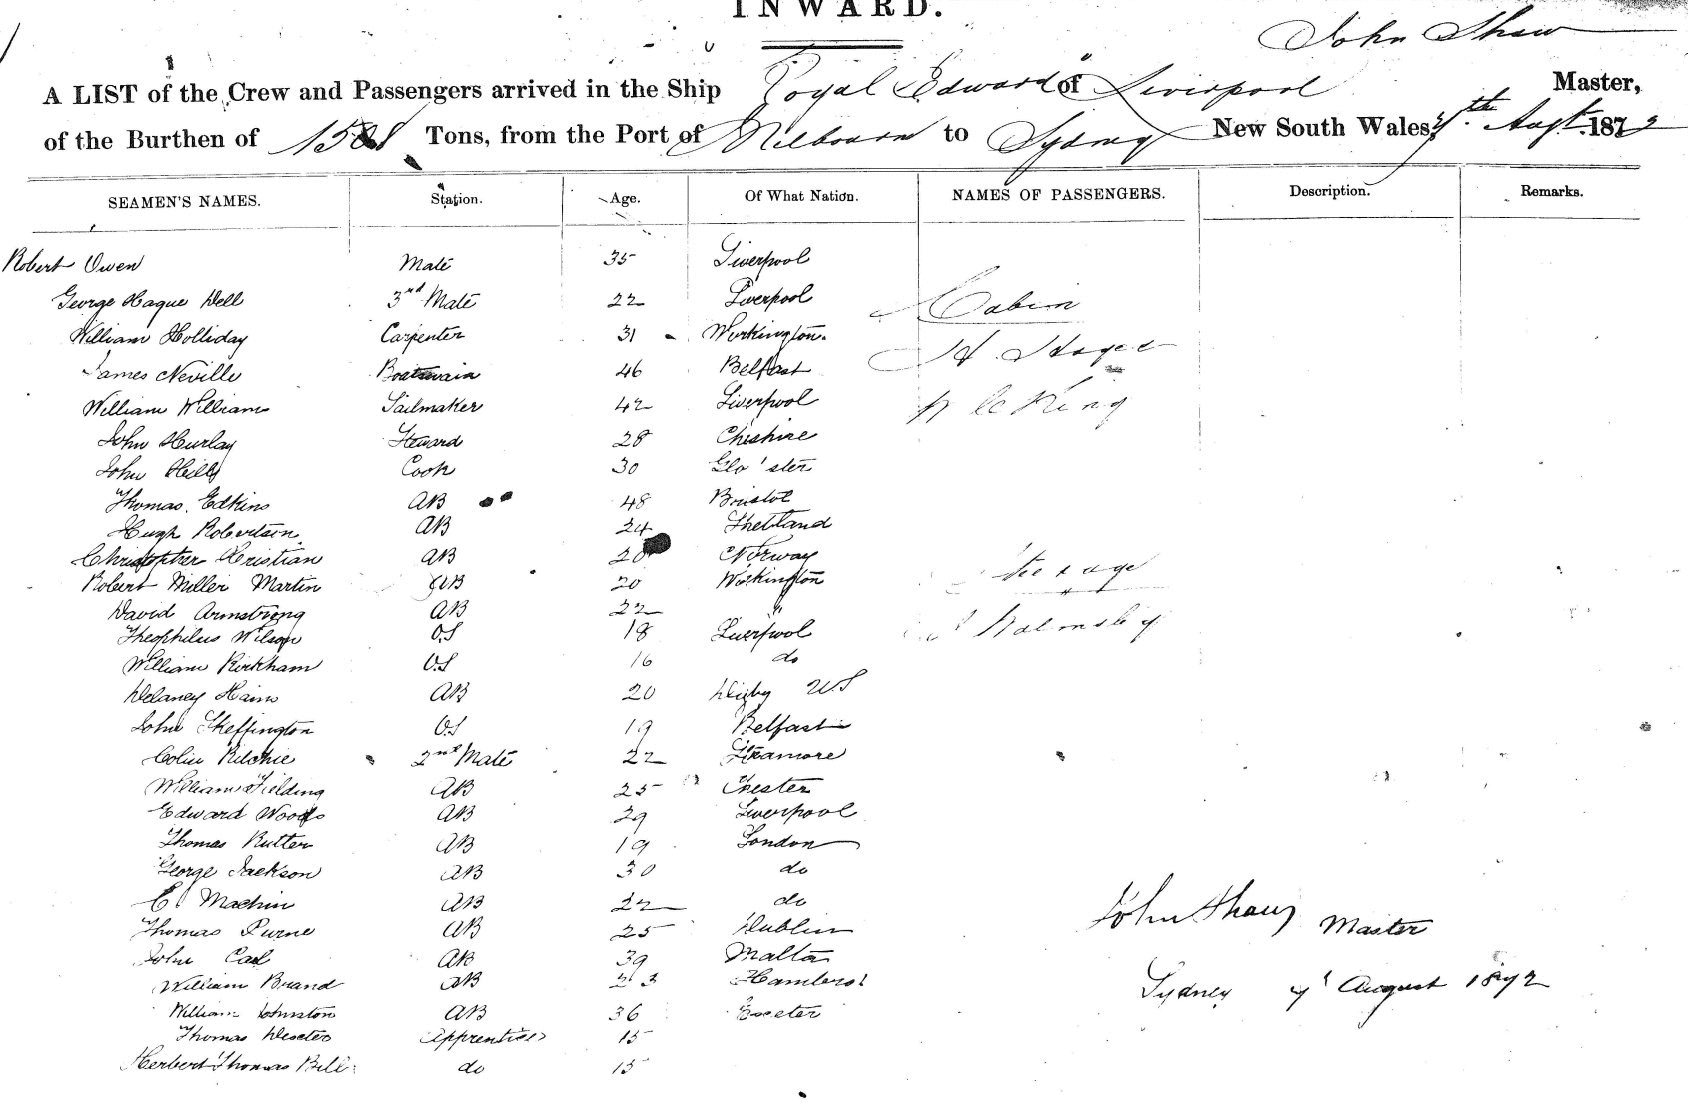 INWARD.
John Shaw
A LIST of the Crew and Passengers arrived in the Ship Royal Edward of Liverpool Master,
of the Burthen of Tons, from the Port of Melbourn to Sydney New South Wales, 7th Augt 1872
SEAMEN'S NAMES. Station. Age. Of What Nation. NAMES OF PASSENGERS. Description. Remarks.
Robert Owen Mate 35 Liverpool
George Hague Dell 3rd Mate 22 Liverpool Cabin
William Holliday Carpenter 31 Workington.
James Neville Boatswain 46 Belfast
William Williams Sailmaker 42 Liverpool
John Hurlay Steward 28 Cheshire
John Hills Cook 30 Glo'ster
Thomas Edkins AB 48 Bristol
Hugh Robertson AB 24 Shetland
Christopher Kristian AB 20 Norway Steerage
Robert Miller Martin AB 20 Workington
David Armstrong AB 22 "
Theophilus Wilson O.S 18 Liverpool
William Kirkham O.S 16 do
Delaney Hains AB 20 Digby US
John Skeffington O.S 19 Belfast
Colin Ritchie 2nd Mate 22
William Fielding AB 25 Chester
Edward Woods AB 29 Liverpool
Thomas Rutter AB 19 London
George Jackson AB 30 do
C Machin AB 22 do
Thomas Purne AB 25 Dublin
John AB 39 Malta
William Brand AB 23
William Johnston AB 36 Exeter
Thomas Apprentice 15
Herbert Thomas Bill do 15
John Shaw Master
Sydney 7 August 1872